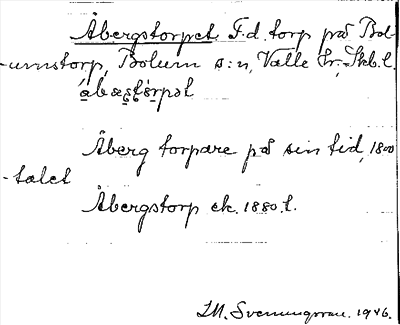 Åbergstorpet F.d. torp på Bol-
umstorp, Bolum s:n, Valle hr, Skb.l.
Åberg torpare på sin tid, 1800
-talet
Åbergstorp ek. 1880.t.
I.M. Svenungsson. 1946.